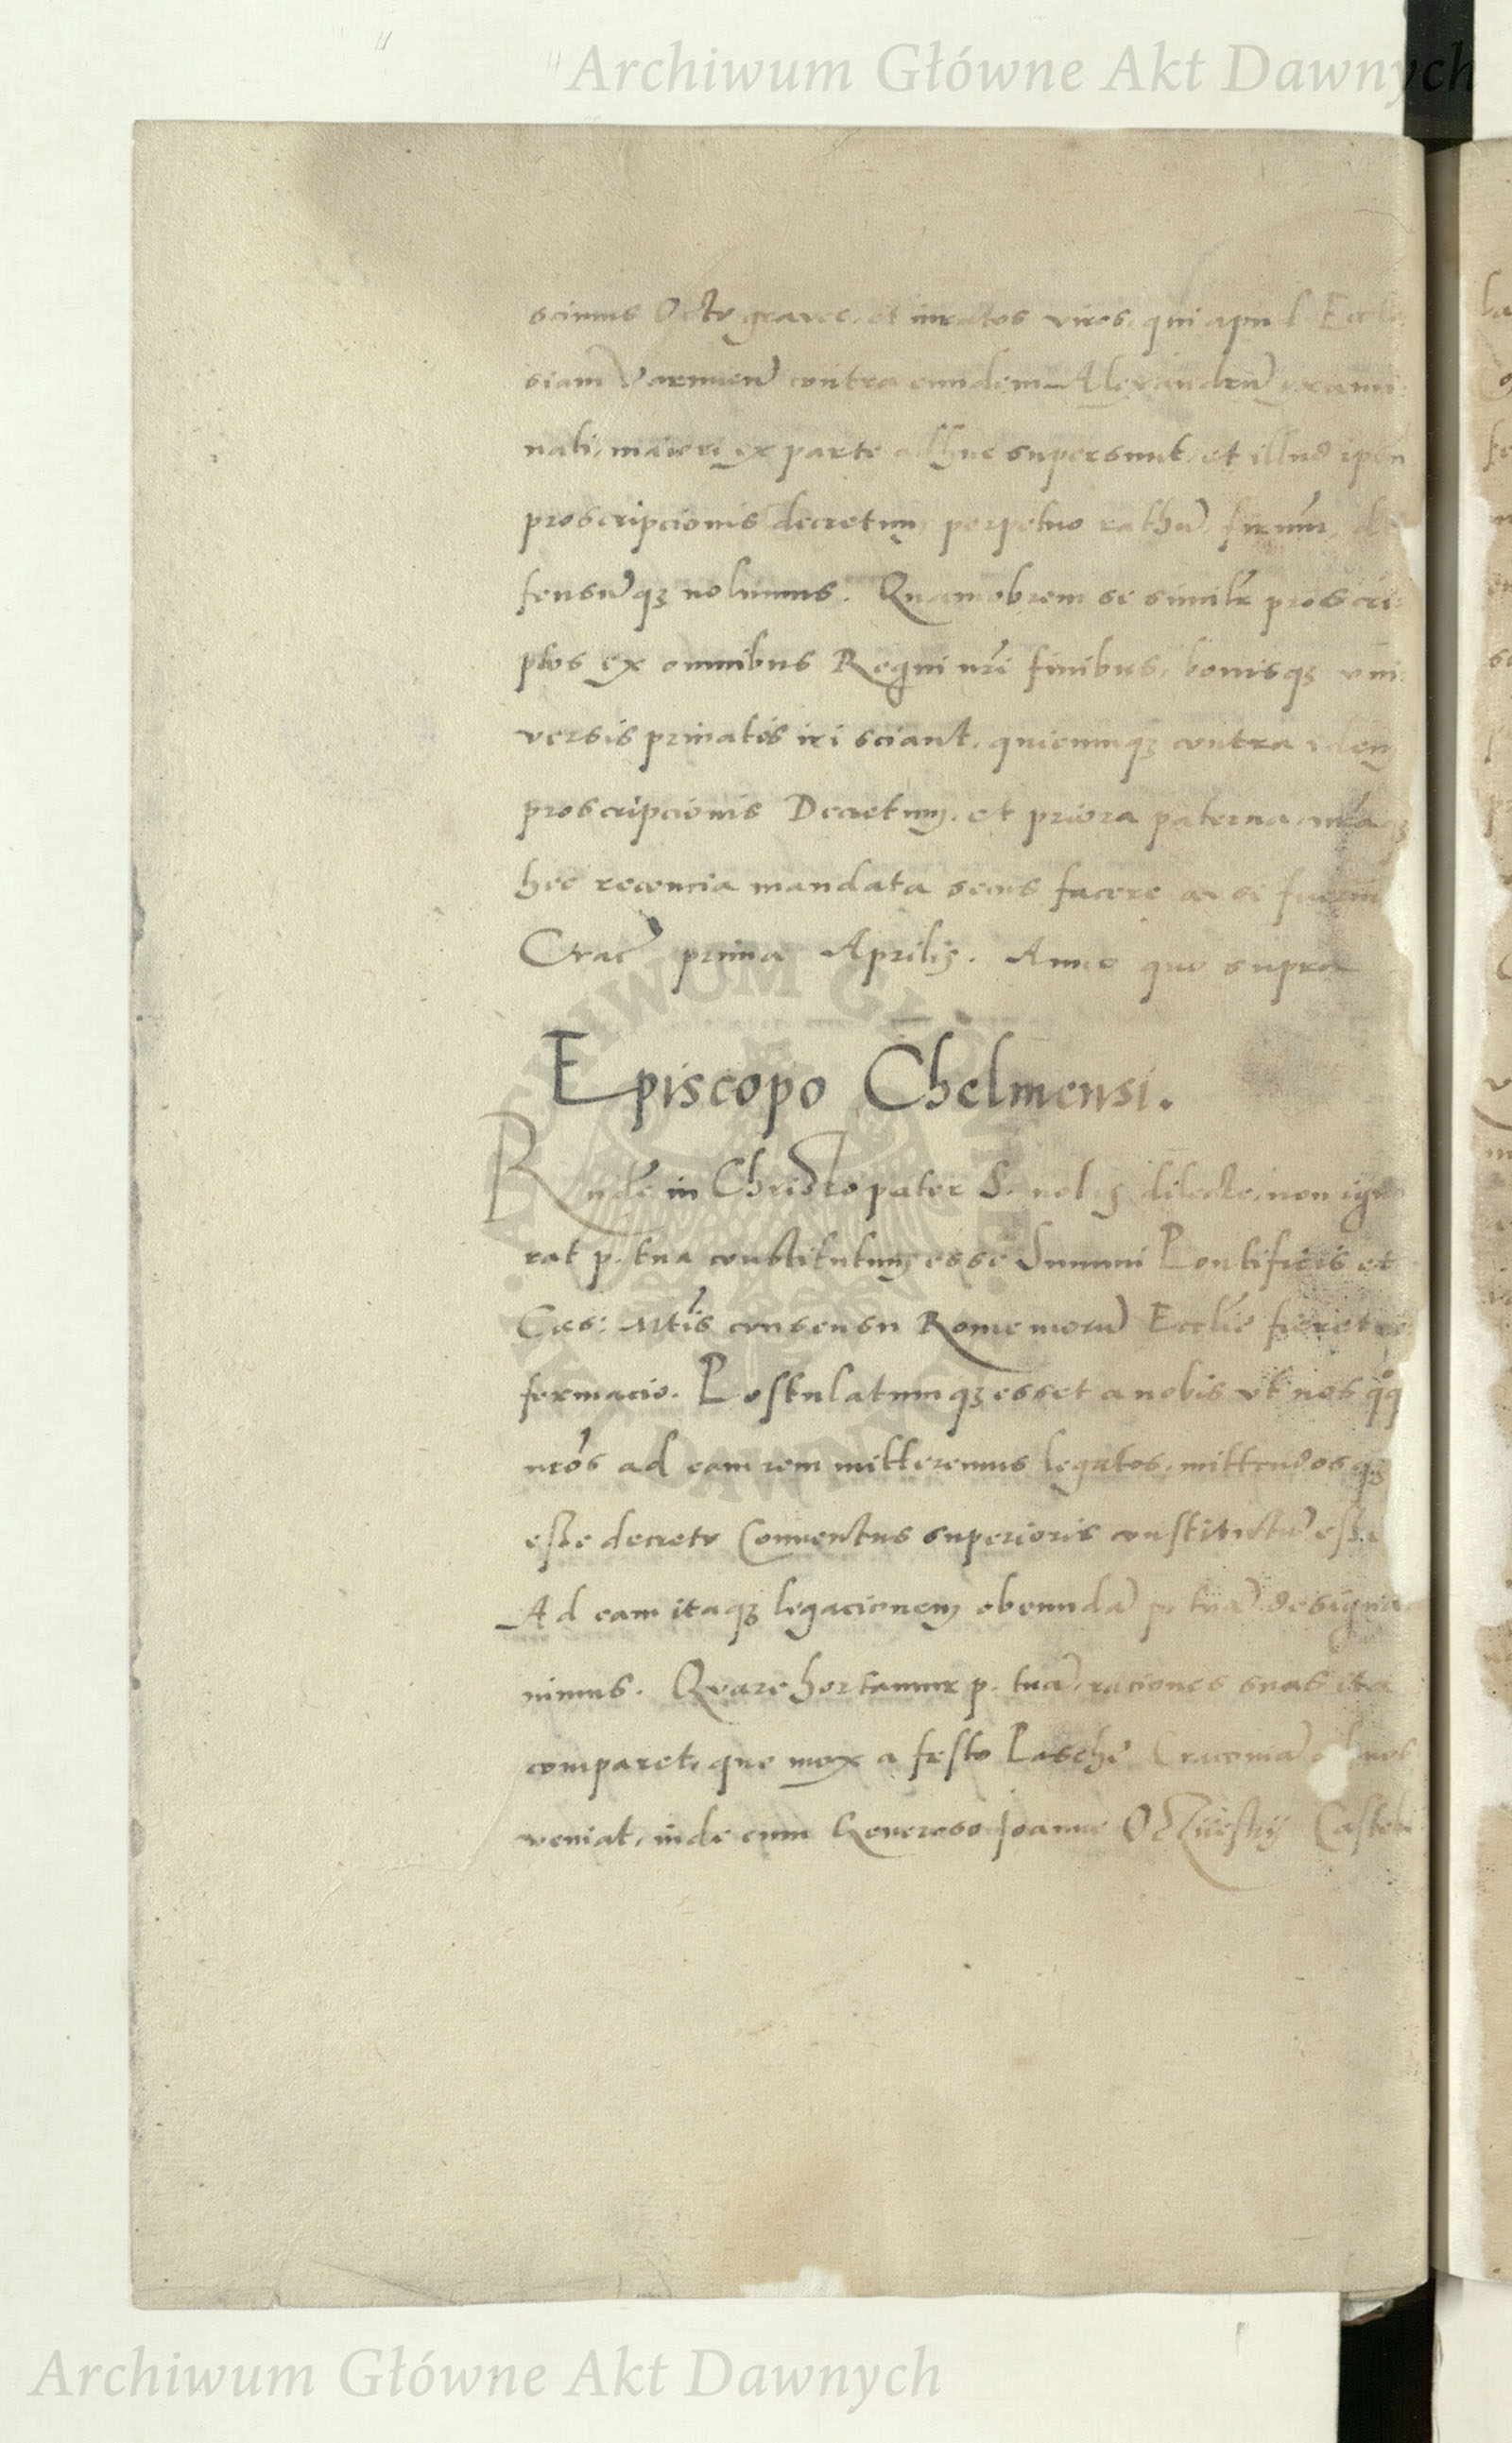 Archiwum Główne Akt Dawnych
scimus Octo graves, et iuratos viros, qui apud Eccle
siam Varmień contra eundem Alexandrũ exami
nati, maiori ex parte adhuc supersunt, et illud
proscripcionis decretum perpetuo rathũ, firmũ, de
fensũqȝ volumus. Quamobrem se simili proscri:
ptos ex omnibus Regni nr̃i finibus, bonisqȝ vni:
versis privatos iri sciant, quicumqȝ contra idem
proscripcionis Decretum, et priora paterna,
hec recencia mandata secus facere
Crac̃ prima Aprilis. Anno quo supra
Episcopo Chelmensi.
Rnde in Christo pater S. nobis dilecte, non igno
rat p. tua constitutum esse Summi Pontificis et
Caes: Mtis consensu Rome morũ Ecclie fieret re
formacio. Postulatumqȝ esset a nobis vt nos qq
nros ad eam rem mitteremus legatos, mittendosqȝ
esse decreto Conventus superioris constitutũ esse
Ad eam itaqȝ legacionem obeundã p. tuã designa
vimus. Quare hortamur p. tuã, raciones suas ita
comparet, quo mox a festo Pasche Cracoviã ad nos
veniat, inde cum Generoso Joanne Castell
Archiwum Główne Akt Dawnych